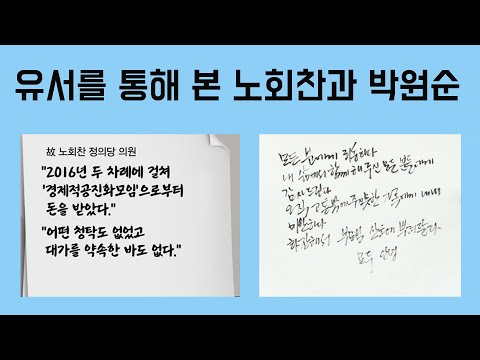 유서를 통해 본 노회찬과 박원순
故 노회찬 정의당 의원
"2016년 두 차례에 걸쳐
'경제적공진화모임'으로부터
돈을 받았다."
"어떤 청탁도 없었고
대가를 약속한 바도 없다."
모든 분에게 죄송하다
내 삶에서 함께 해주신 모든 분들에게
감사드린다
오직 고통밖에 주지 못한 가족에게 내내
미안하다
화장해서 부모님 산소에 뿌려달라
모두 안녕